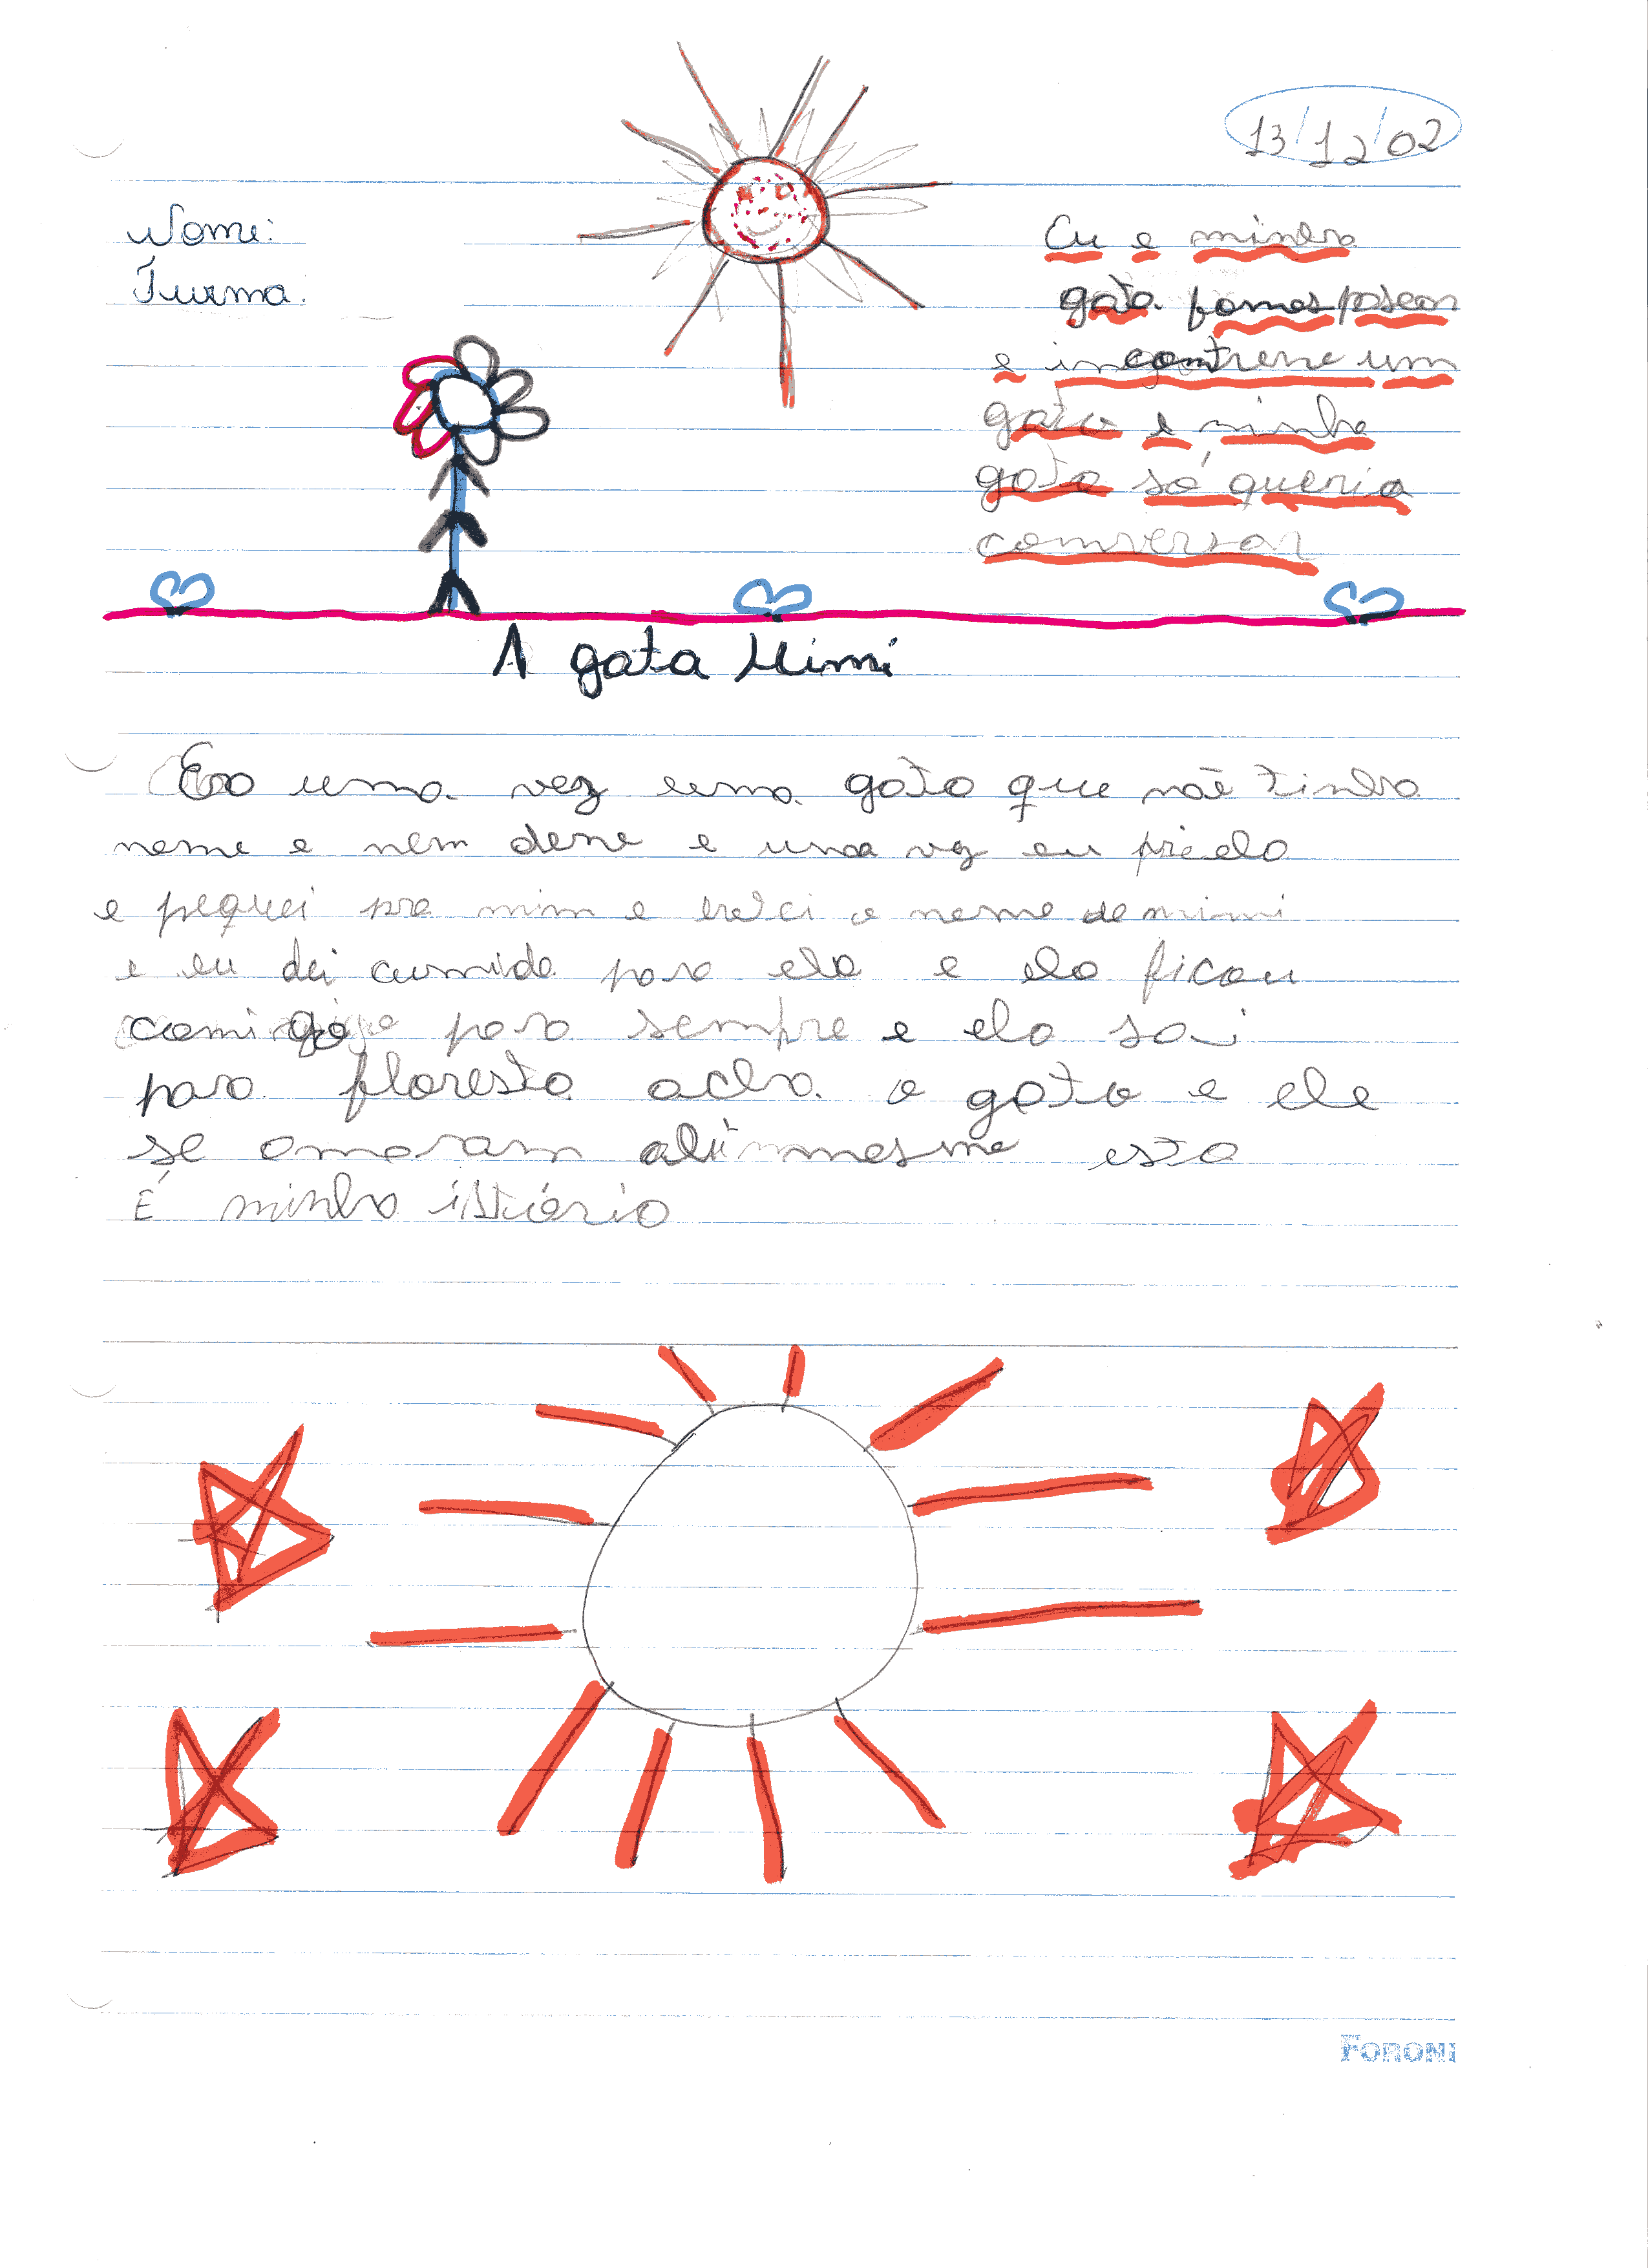 13/12/02
Nome:
Turma.
Eu e minha
gata fomos pasear
e incontrene um
gato e minha
gata só queria
comversar
A gata Mimi
Era uma vez uma gata que não tinha
nome e nem dono e uma vez eu
e peguei pra mim e o nome de mimi
e eu dei cumida para ela e ela ficou
comigo para sempre e ela sai
para floresta acha o gato e ele
se amaram esta
É minha istória
FORONI